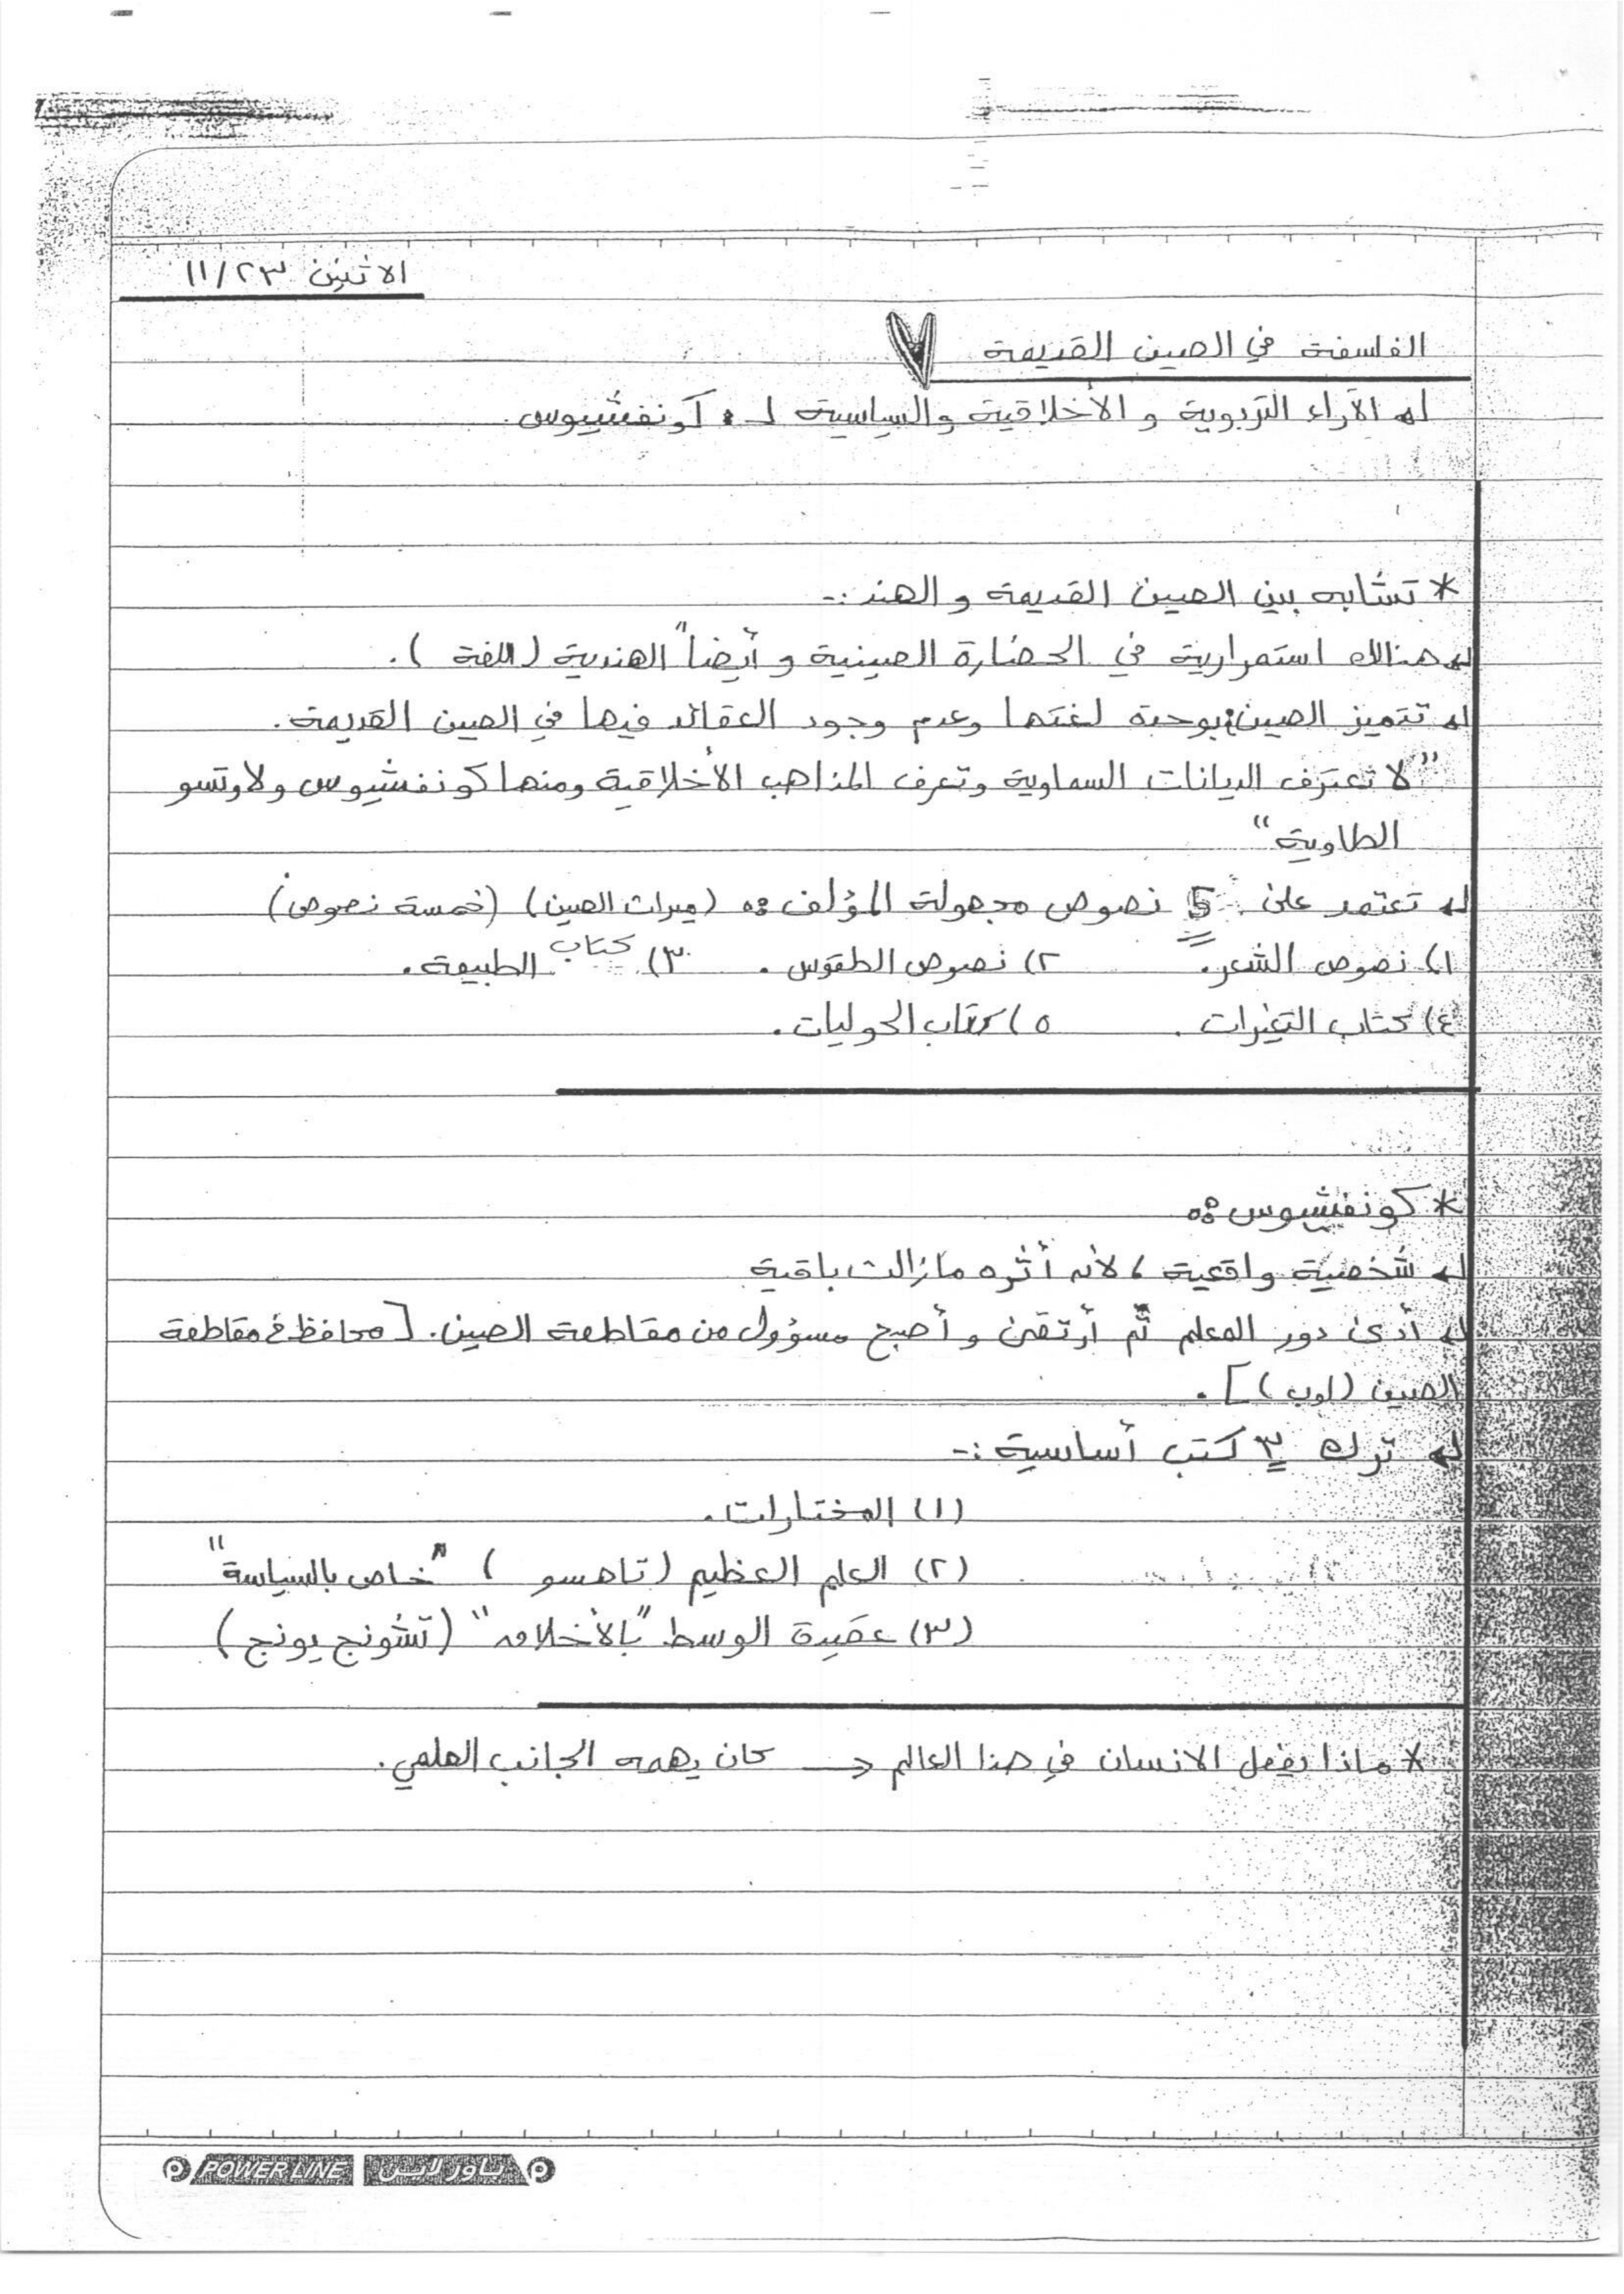 الاثنين ٢٣/١١
الفلسفة في الصين القديمة
الآراء التربوية و الأخلاقية والسياسية لـ : كونفشيوس.
* تشابه بين الصين القديمة و الهند :-
هنالك استمرارية في الحضارة الصينية و أيضاً الهندية (اللغة).
تتميز الصين بوحدة لغتها وعدم وجود العقائد فيها في الصين القديمة.
"لا تعترف الديانات السماوية وتعرف المذاهب الأخلاقية ومنها كونفشيوس ولاوتسو
الطاوية"
تعتمد على 5 نصوص مجهولة المؤلف : (ميراث الصين) (خمسة نصوص)
١) نصوص الشعر. ٢) نصوص الطقوس. ٣) كتاب الطبيعة.
٤) كتاب التغيرات. ٥) كتاب الحوليات.
* كونفشيوس :
شخصية واقعية ، لأنه أثره مازالت باقية
أدى دور المعلم ثم أرتقى و أصبح مسؤول من مقاطعة الصين. [محافظ في مقاطعة
الصين (لوب)].
ترك ٣ كتب أساسية :-
(١) المختارات.
(٢) العلم العظيم (تاهسو) "خاص بالسياسة"
(٣) عقيدة الوسط "بالأخلاق" (تشونج يونج)
* ماذا يفعل الانسان في هذا العالم → كان يهمه الجانب العلمي.
POWER LINE باور لاين